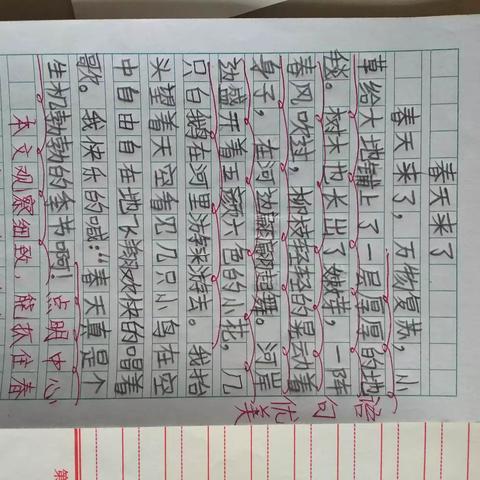 春天来了
春天来了，万物复苏，小
草给大地铺上了一层厚厚的地
毯。树木也长出了嫩芽，一阵
春风吹过，柳枝轻轻的晃动着
身子，在河边翩翩起舞。河岸
边盛开着五颜六色的小花，几
只白鹅在河里游来游去。我抬
头望着天空看见几只小鸟在空
中自由自在地飞翔欢快的唱着
歌。我快乐的喊：“春天真是个
生机勃勃的季节啊！
语句优美
点明中心
本文观察细致，能抓住春
第